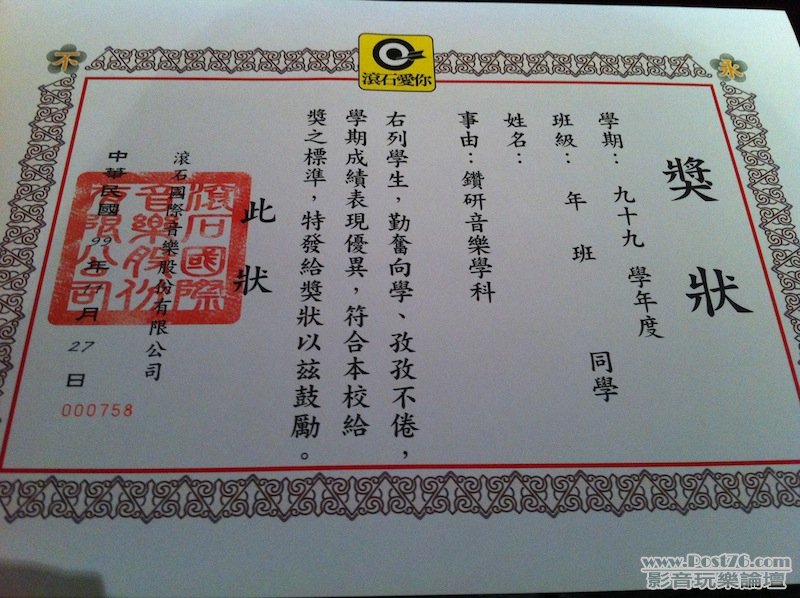 永
不
滾石愛你
獎狀
學期：九十九 學年度
班級： 年 班
姓名： 同學
事由：鑽研音樂學科
右列學生，勤奮向學、孜孜不倦，
學期成績表現優異，符合本校給
獎之標準，特發給獎狀以茲鼓勵。
此狀
滾石國際音樂股份有限公司
滾石國際
音樂股份
有限公司
中華民國 99 年 11 月 27 日
000758
www.Post76.com
影音玩樂論壇